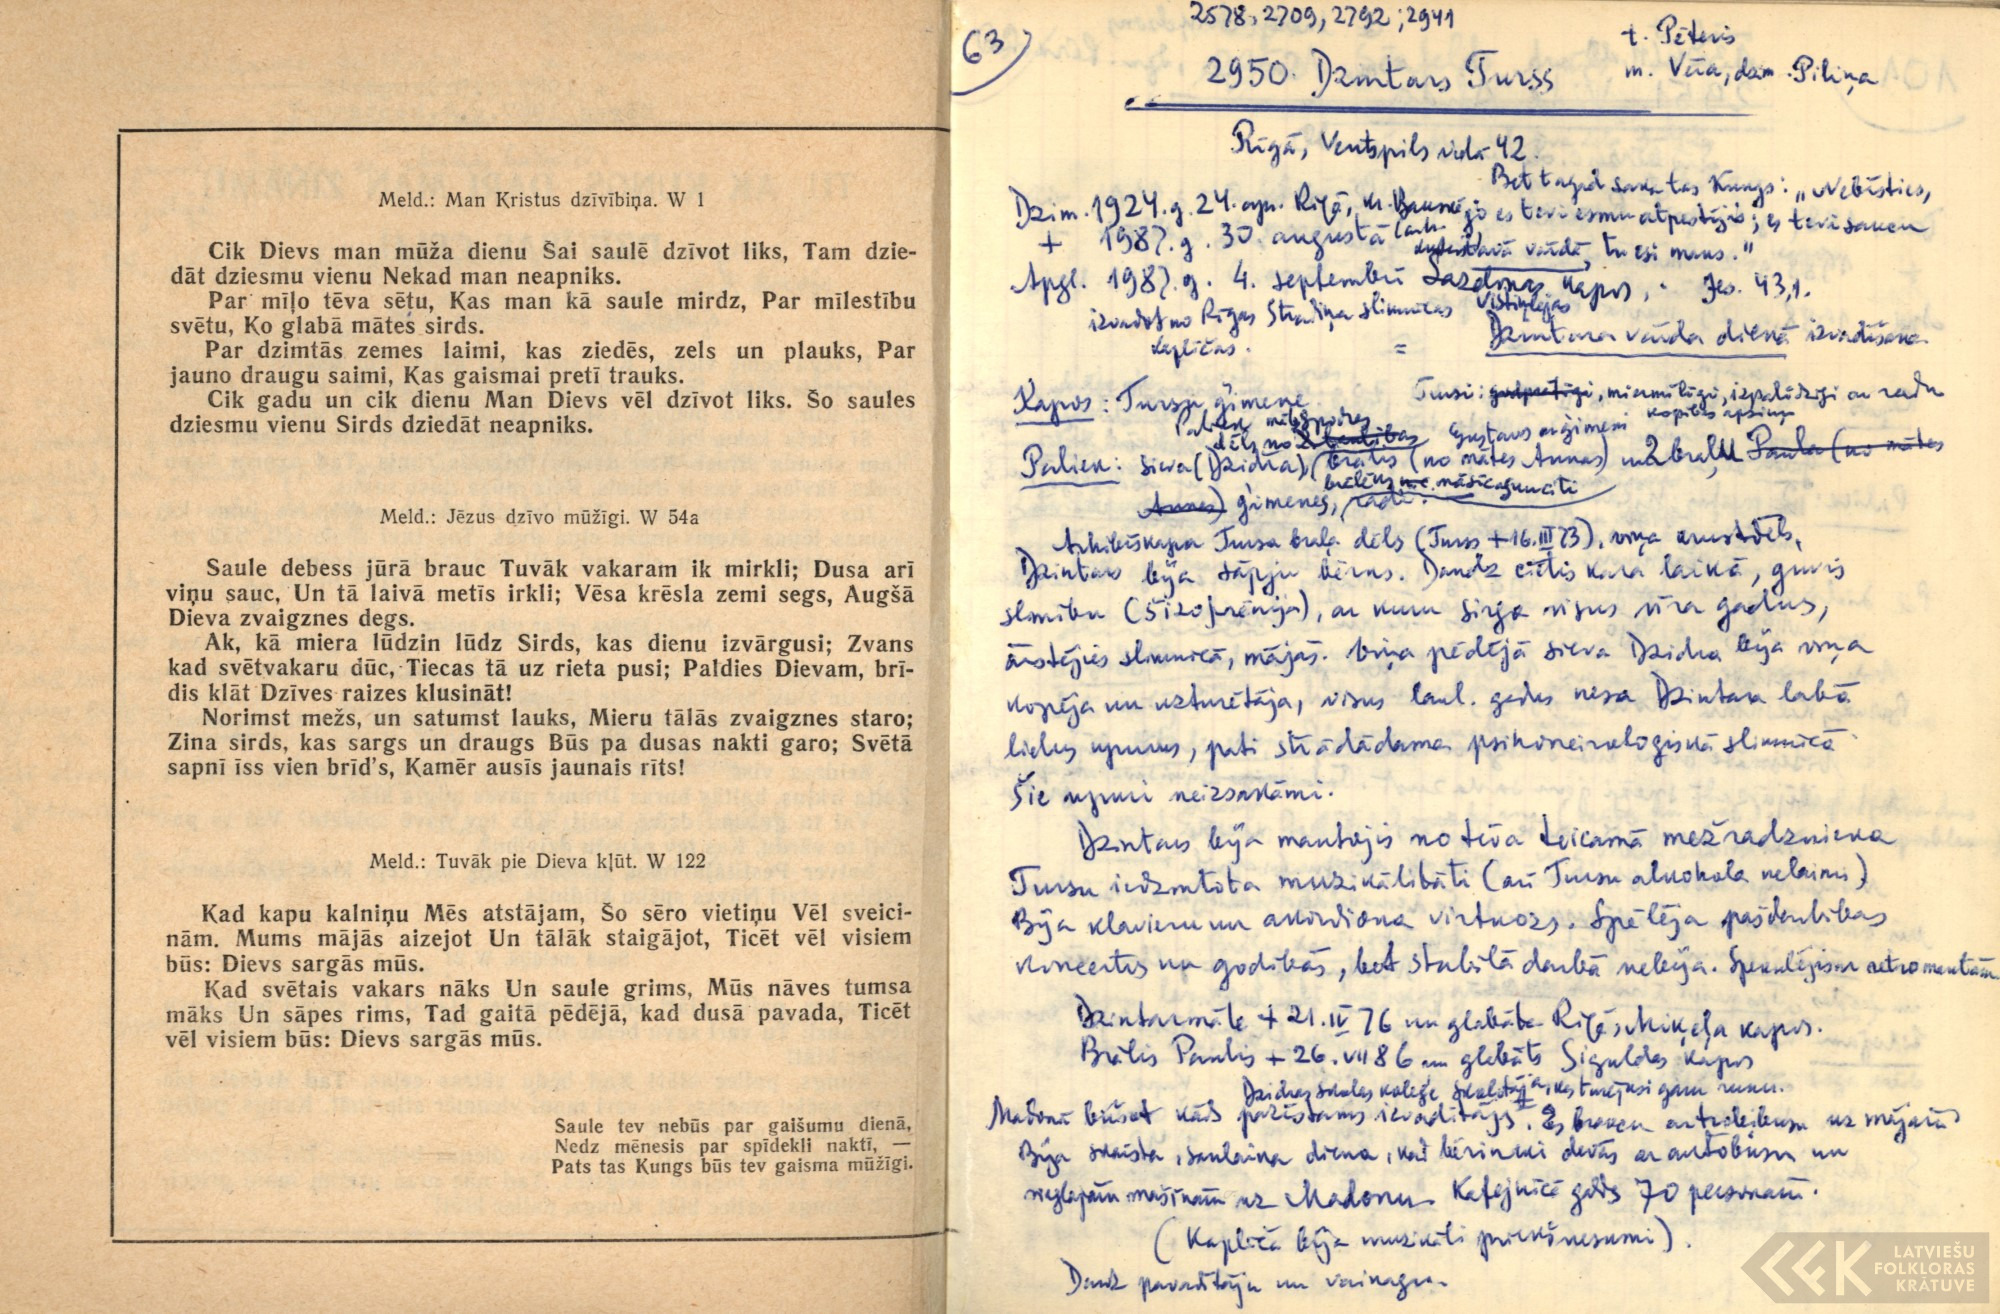 Meld.: Man Kristus dzīvībiņa. W 1
Cik Dievs man mūža dienu Šai saulē dzīvot liks, Tam dzie-
dāt dziesmu vienu Nekad man neapniks.
Par mīļo tēva sētu, Kas man kā saule mirdz, Par mīlestību
svētu, Ko glabā mātes sirds.
Par dzimtās zemes laimi, kas ziedēs, zels un plauks, Par
jauno draugu saimi, Kas gaismai pretī trauks.
Cik gadu un cik dienu Man Dievs vēl dzīvot liks. Šo saules
dziesmu vienu Sirds dziedāt neapniks.
Meld.: Jēzus dzīvo mūžīgi. W 54a
Saule debess jūrā brauc Tuvāk vakaram ik mirkli; Dusa arī
viņu sauc, Un tā laivā metīs irkli; Vēsa krēsla zemi segs, Augšā
Dieva zvaigznes degs.
Ak, kā miera lūdzin lūdz Sirds, kas dienu izvārgusi; Zvans
kad svētvakaru dūc, Tiecas tā uz rieta pusi; Paldies Dievam, brī-
dis klāt Dzīves raizes klusināt!
Norimst mežs, un satumst lauks, Mieru tālās zvaigznes staro;
Zina sirds, kas sargs un draugs Būs pa dusas nakti garo; Svētā
sapnī īss vien brīd's, Kamēr ausīs jaunais rīts!
Meld.: Tuvāk pie Dieva kļūt. W 122
Kad kapu kalniņu Mēs atstājam, Šo sēro vietiņu Vēl sveici-
nām. Mums mājās aizejot Un tālāk staigājot, Ticēt vēl visiem
būs: Dievs sargās mūs.
Kad svētais vakars nāks Un saule grims, Mūs nāves tumsa
māks Un sāpes rims, Tad gaitā pēdējā, kad dusā pavada, Ticēt
vēl visiem būs: Dievs sargās mūs.
Saule tev nebūs par gaišumu dienā,
Nedz mēnesis par spīdekli naktī, —
Pats tas Kungs būs tev gaisma mūžīgi.
2578, 2709, 2792; 2941
63
t. Pēteris
2950. Dzintars Turss
m. Vēra, dzim. Piliņa
Rīgā, Ventspils ielā 42.
Bet tagad saka tas Kungs: „Nebīsties,
Dzim. 1924.g. 24. apr. Rīgā, kr. jo es tevi esmu atpestījis; es tevi saucu
+ 1987.g. 30. augustā tavā vārdā, tu esi mans."
Apgl. 1987.g. 4. septembrī Lazdonas kapos, Jes. 43,1.
izvadot no Rīgas Stradiņa slimnīcas
kapličas. = Dzintara vārda dienā izvadīšana
Kapos: Tursu ģimene. Tursi: miermīlīgi, izpalīdzīgi ar radu
kopības apziņu
Paliek mātes
dēls no Gustavs ar ģimeni
Paliek: sieva (Dzidra), brālis (no mātes Annas) un 2 brāļu Paula (no mātes
Annas) ģimenes, radi.
Arhibīskapa Tursa brāļa dēls (Turss +16.III 73), viņa krustdēls,
Dzintars bija sāpju bērns. Daudz cietis kara laikā, guvis
slimību (šizofrēnija), ar kuru sirga visus vīra gadus,
ārstējies slimnīcā, mājās. Viņa pēdējā sieva Dzidra bija viņa
kopēja un uzturētāja, visus laul. gadus nesa Dzintara labā
lielus upurus, pati strādādama psihoneiroloģiskā slimnīcā.
Šie upuri neizsakāmi.
Dzintars bija mantojis no tēva teicamā mežradznieka
Tursu iedzimtota muzikālitāti (arī Tursu alkohola nelaimi)
Bija klavieru un akordiona virtuozs. Spēlēja pašdarbības
koncertos un godībās, bet stabilā darbā nebija. Spekulējis ar retro mantām
Dzintarmāte + 21.IV 76 un glabāta Rīgā, Miķeļa kapos.
Brālis Paulis + 26.VII 86 un glabāts Siguldas kapos
Dzidras skolas kolēģe skolotāja, kas turējusi garu runu.
Madonā būšot kāds pazīstams izvadītājs. Es braucu ar trolejbusu uz mājām
Bija skaista, saulaina diena, kad bērinieki devās ar autobusu un
vieglajām mašīnām uz Madonu. Kafejnīcā galds 70 personām.
(Kapličā bija muzikāli priekšnesumi).
Daudz pavadītāju un vainagu.
LATVIEŠU
FOLKLORAS
KRĀTUVE